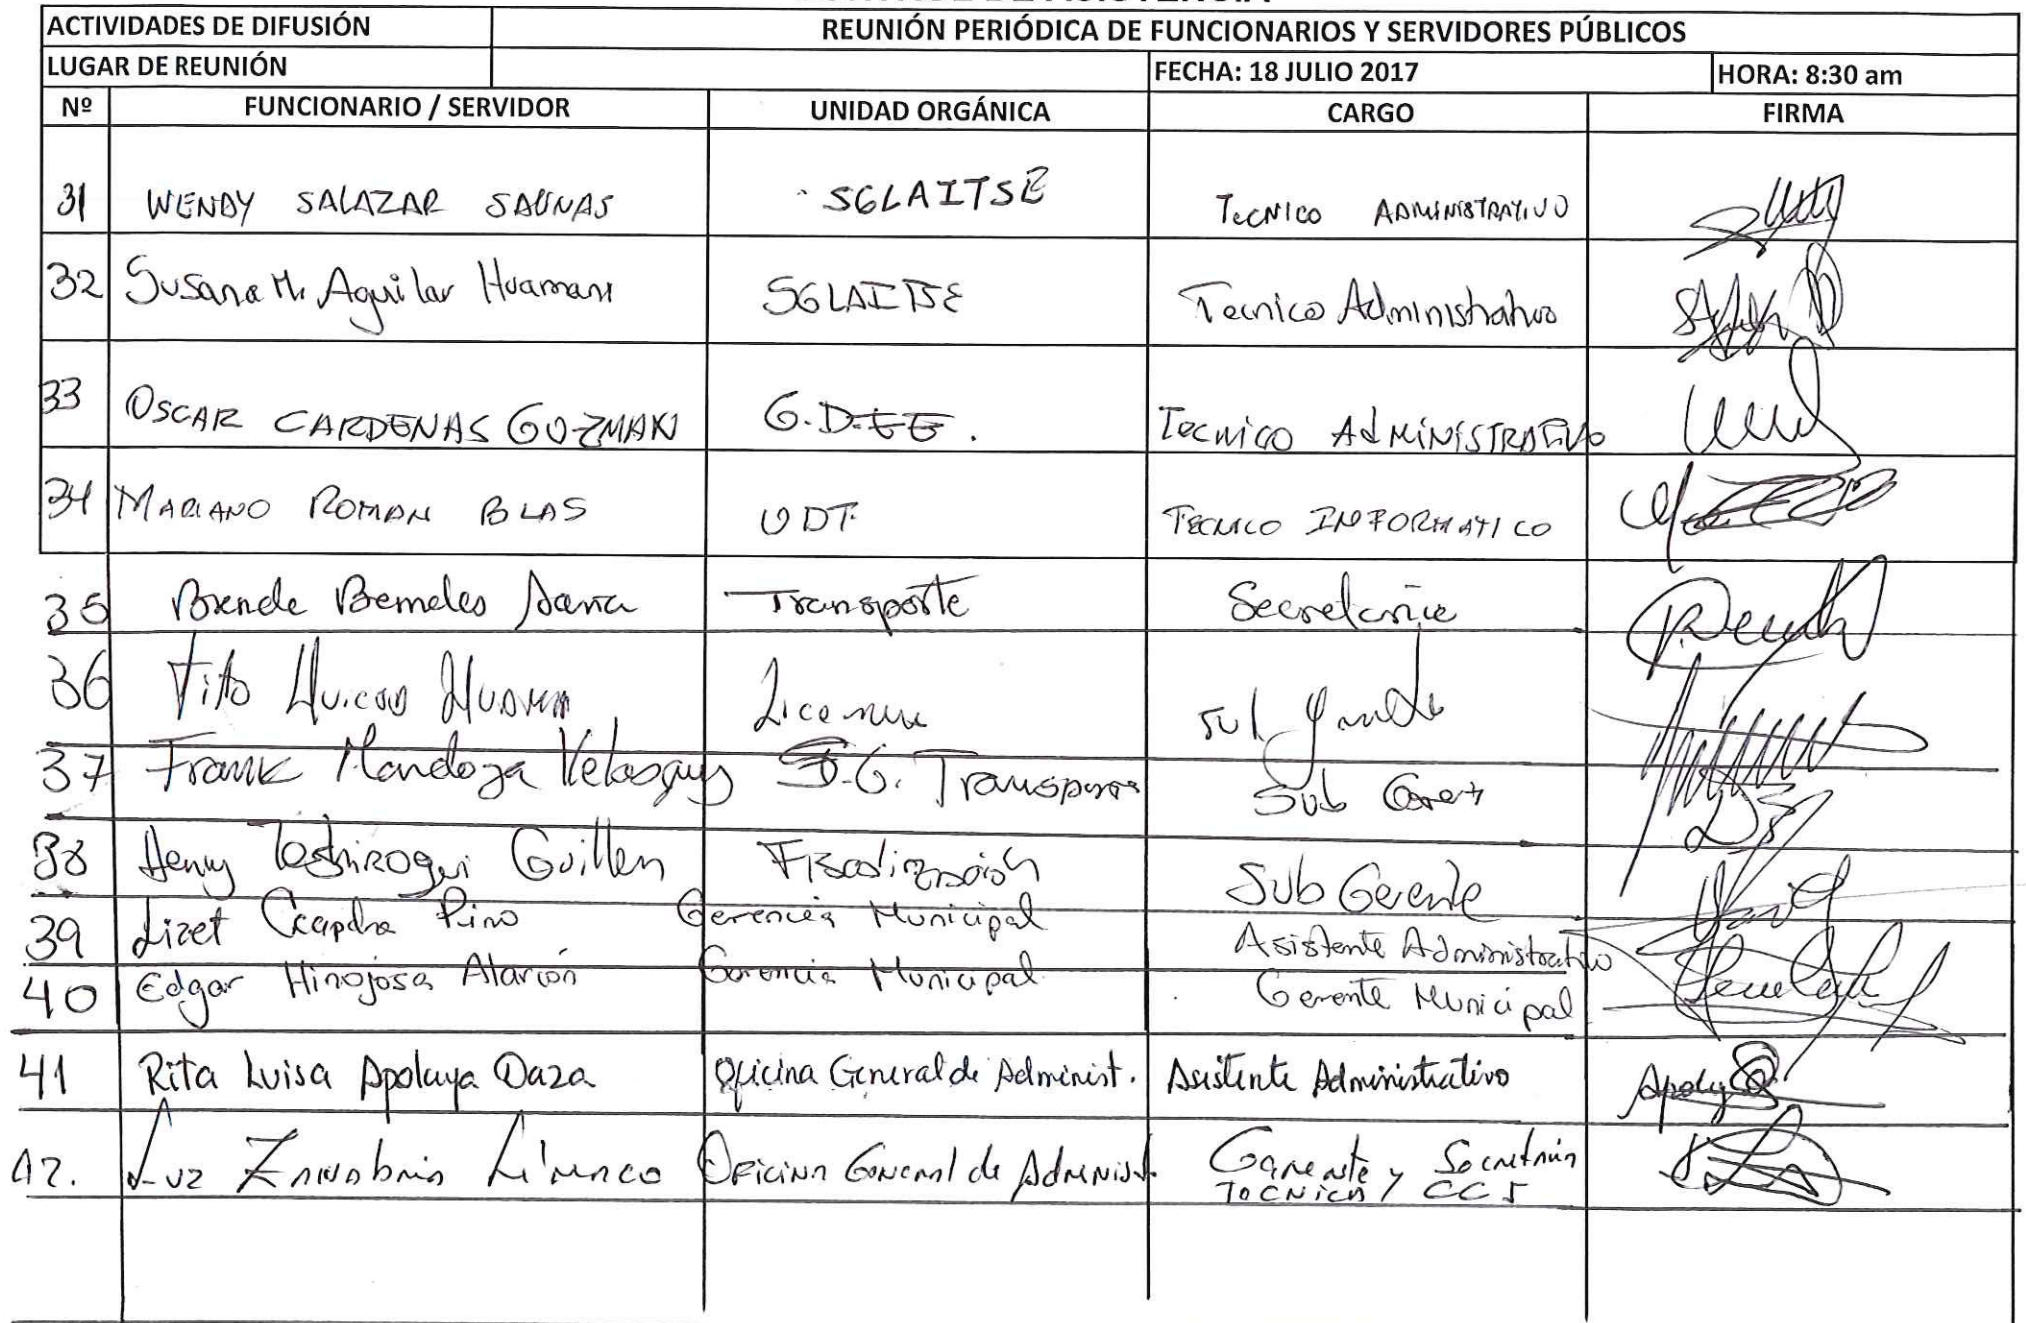 ACTIVIDADES DE DIFUSIÓN REUNIÓN PERIÓDICA DE FUNCIONARIOS Y SERVIDORES PÚBLICOS
LUGAR DE REUNIÓN FECHA: 18 JULIO 2017 HORA: 8:30 am
Nº FUNCIONARIO / SERVIDOR UNIDAD ORGÁNICA CARGO FIRMA
31 WENDY SALAZAR SALINAS SGLAITSE TECNICO ADMINISTRATIVO
32 Susana M. Aguilar Huamani SGLAITSE Tecnico Administrativo
33 OSCAR CARDENAS GUZMAN G.D.E.E. Tecnico ADMINISTRATIVO
34 MARIANO ROMAN BLAS UDT TECNICO INFORMATICO
35 Transporte Secretaria
36 Tito
37 Frank Mendoza Velasquez Sub
38 Henry Guillen Fiscalización Sub Gerente
39 Lizet Pino Gerencia Municipal Asistente Administrativo
40 Edgar Hinojosa Alarcón Gerencia Municipal Gerente Municipal
41 Rita Luisa Apolaya Daza Oficina General de Administ. Asistente Administrativo
42. Luz Zanabria Limaco Oficina General de Administ. Gerente y Secretaria
Tecnica